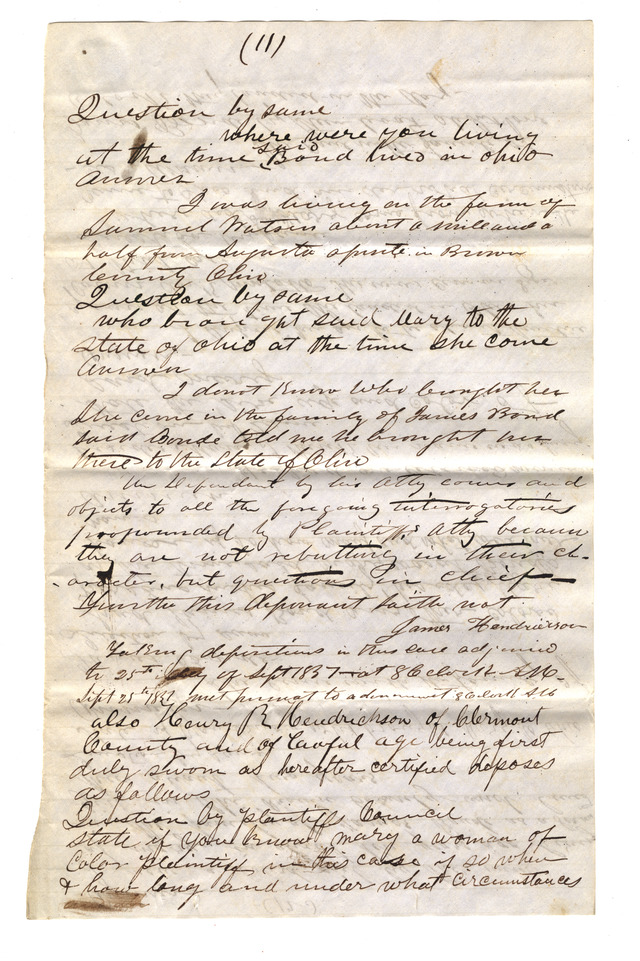 (11)
Question by same
where were you living
at the time said Bond lived in ohio
Answer
I was living on the farm of
Samuel Watson about a mile and a
half from Augusta oposite in Brown
County Ohio
Question by same
who brought said Mary to the
State of Ohio at the time she come
Answer
I do not Know Who brought her
She come in the family of James Bond
Said Bonde told me he brought her
there to the State of Ohio
The Defendant by his Atty comes and
objects to all the foregoing interrogatories
propounded by Plaintiffs Atty because
they are not rebutting in their ch-
aracter, but questions in chief
Further this deponant saith not
James Hendrickson
Taking depositions in this case adjourned
to 25th day of Sept 1837 at 8 Oclock A M.
Sept 25th 1837 met pursuant to adournment 8 Oclock A M
also Henry R Hendrickson of Clermont
County and of Lawful age being first
duly sworn as hereafter certified deposes
as follows
Question by plaintiffs Council
State if you Know mary a woman of
Color plaintiff in this case if so when
& how long and under what circumstances